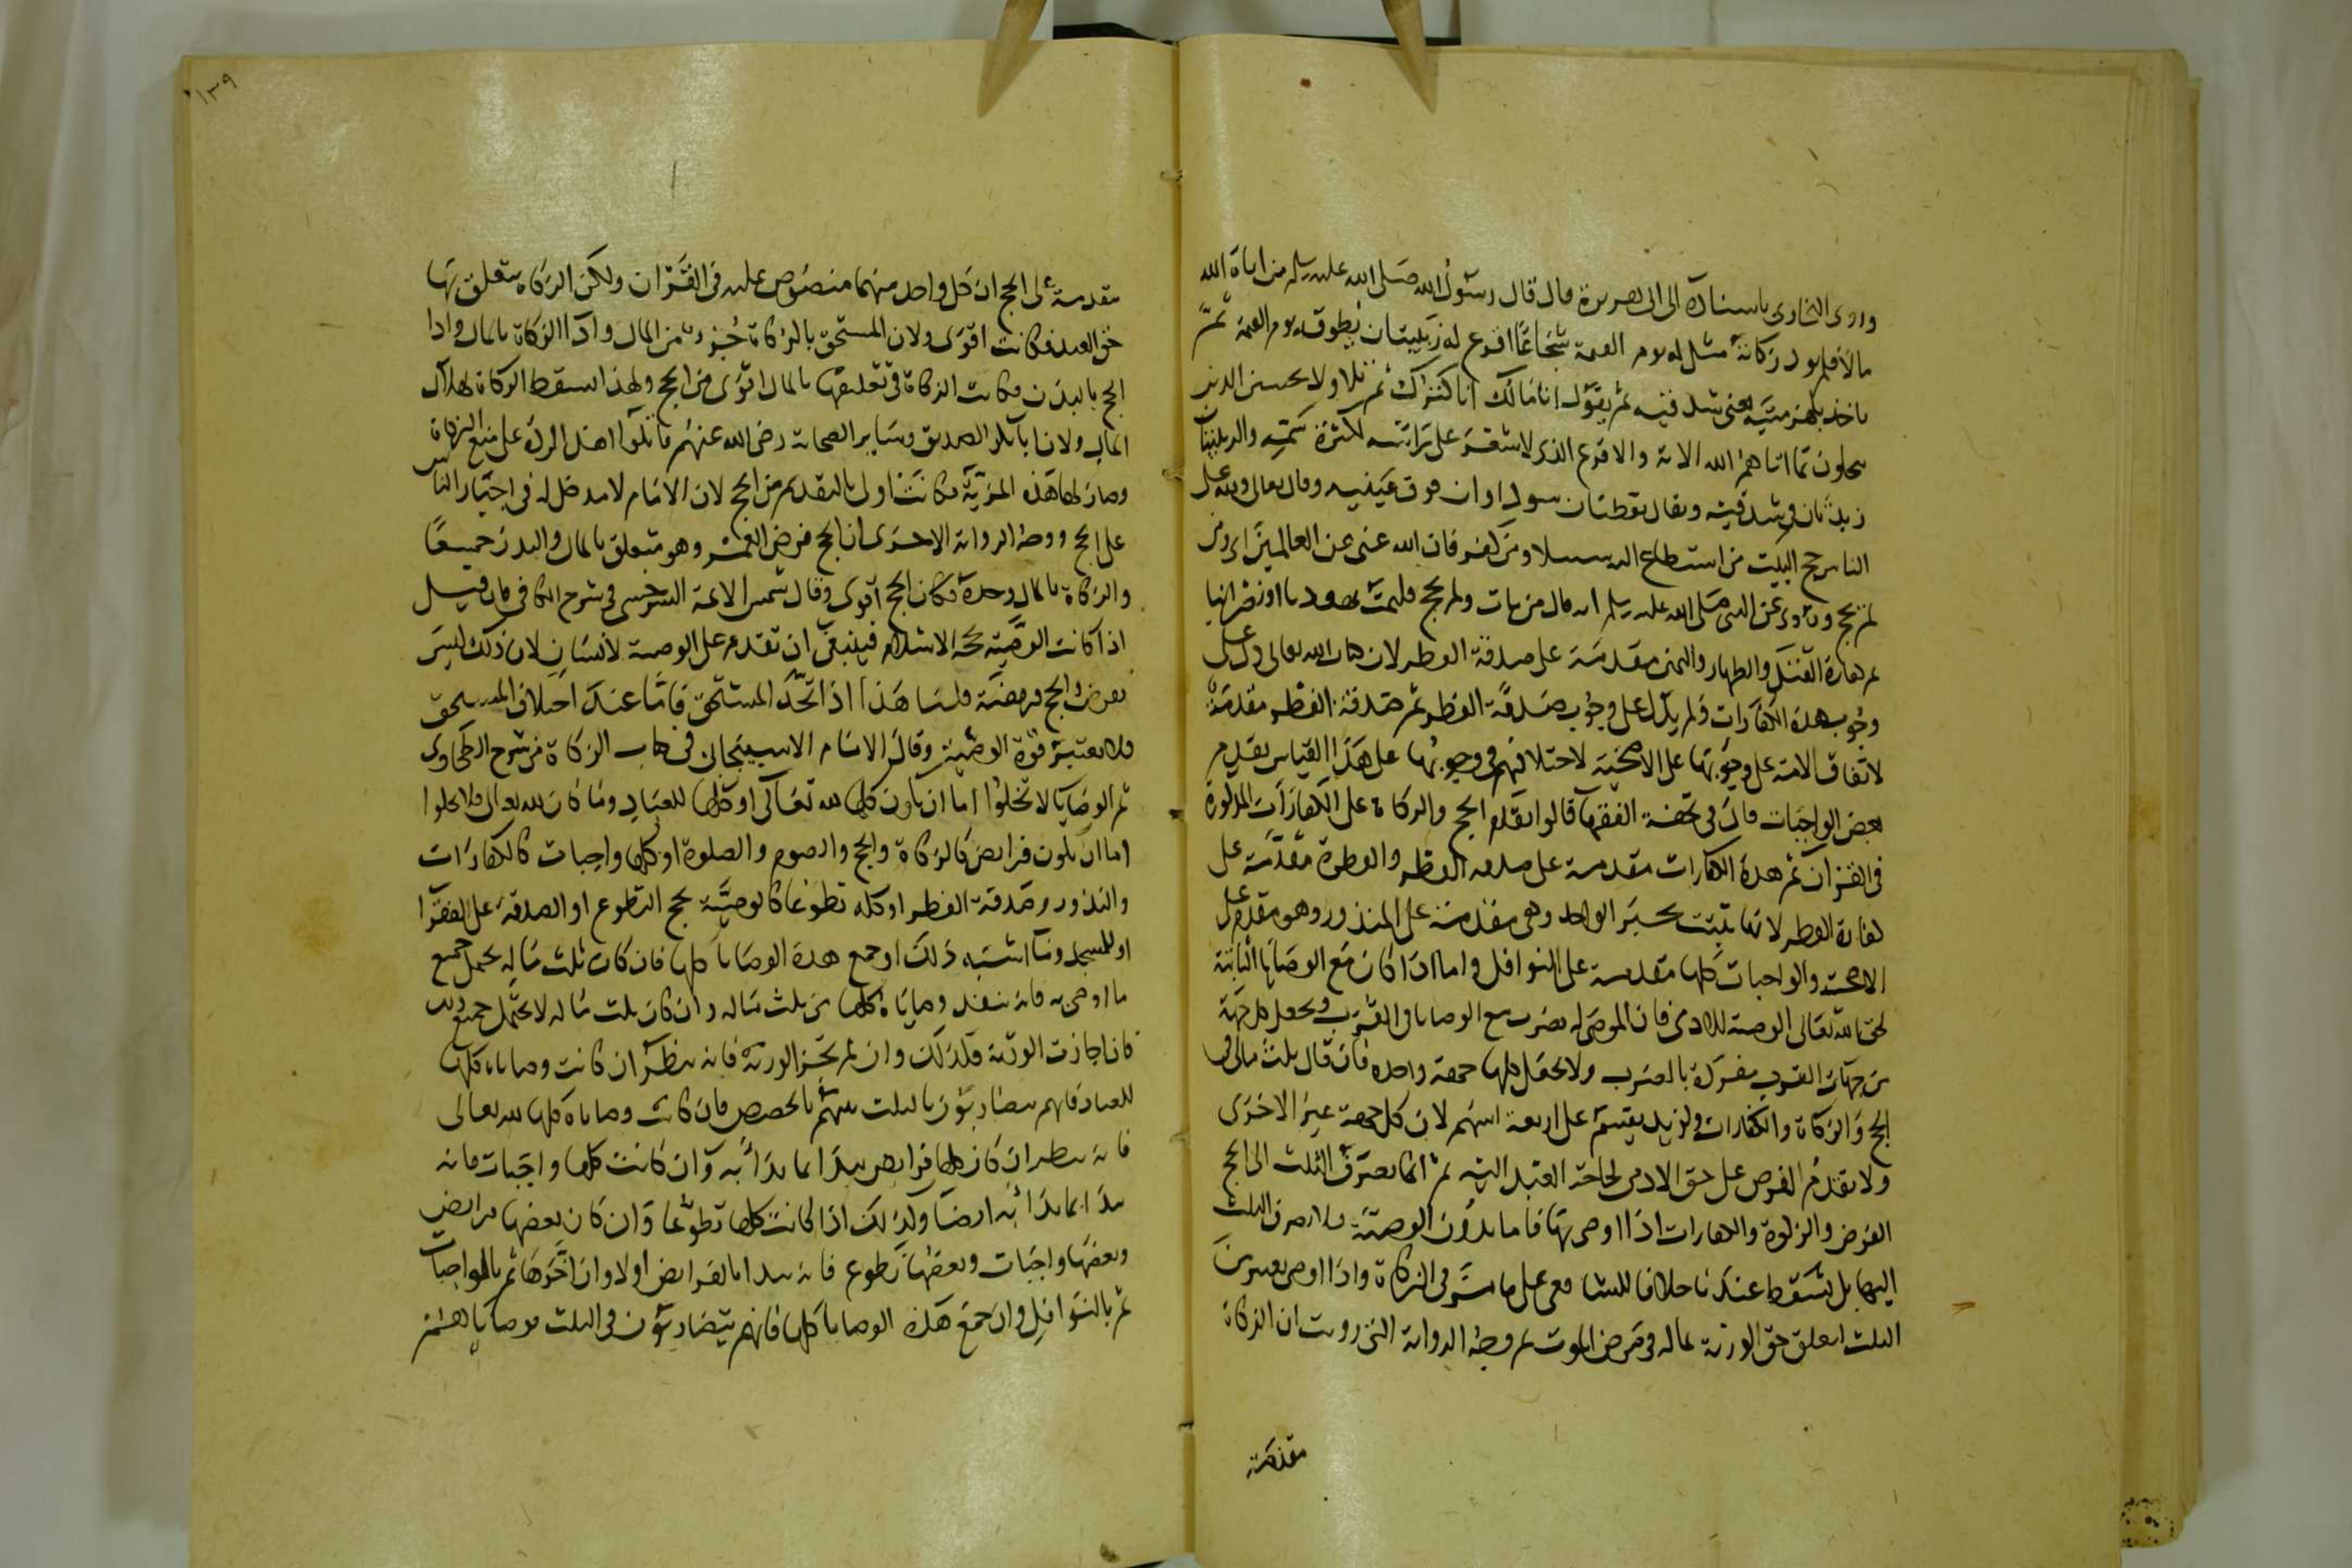 وروى البخارى باسناده الى ابى هريرة قال قال رسول الله صلى الله عليه وسلم من اتاه الله
مالا فلم يود زكاته مثل له يوم القيمة شجاعا اقرع له زبيبتان يطوقه يوم القيمة ثم
ياخذ بلهزمتيه يعنى شدقيه ثم يقول انا مالك انا كنزك ثم تلا ولا يحسبن الذين
يبخلون بما اتاهم الله الاية والاقرع الذى لا شعر على راسه لكثرة سمه والزبيبتان
زبدتان فى شدقيه ويقال نقطتان سوداوان فوق عينيه وقال تعالى ولله على
الناس حج البيت من استطاع اليه سبيلا ومن كفر فان الله غنى عن العالمين اى ومن
لم يحج وروى عن النبى صلى الله عليه وسلم انه قال من مات ولم يحج فليمت يهوديا او نصرانيا
ثم كفارة القتل والظهار واليمين مقدمة على صدقة الفطر لان كتاب الله تعالى دل على
وجوب هذه الكفارات ولم يدل على وجوب صدقة الفطر ثم صدقة الفطر مقدمة
لاتفاق الامة على وجوبها على الاضحية لاختلافهم فى وجوبها على هذا القياس يقدم
بعض الواجبات قال فى تحفة الفقهاء قالوا يقدم الحج والزكاة على الكفارات المذكورة
فى القران ثم هذه الكفارات مقدمة على صدقة الفطر والفطرة مقدمة على
كفارة الفطر لانها تثبت بخبر الواحد وهى مقدمة على المنذور وهو مقدم على
الاضحية والواجبات كلها مقدمة على النوافل واما اذا كان مع الوصايا الثابتة
لحق الله تعالى الوصية للادمى فان الموصى له يضرب مع الوصايا والقرب ويجعل كل جهة
من جهات القرب مفردة بالضرب ولا يجعل كلها جهة واحدة فان قال ثلث مالى فى
الحج والزكاة والكفارات ولزيد يقسم على اربعة اسهم لان كل جهة غير الاخرى
ولا يقدم الفرض على حق الادمى لحاجة العبد اليه ثم انما يصرف الثلث الى الحج
الفرض والزكوة والكفارات اذا اوصى بها فاما بدون الوصية فلا يصرف الثلث
اليها بل يسقط عندنا خلافا للشافعى على ما مر فى الزكاة واذا اوصى يعتبر من
الثلث لتعلق حق الورثة بماله فى مرض الموت ثم وجه الرواية التى رويت ان الزكاة
مقدمة
١٣٩
مقدمة على الحج ان كل واحد منهما منصوص عليه فى القران ولكن الزكاة يتعلق بها
حق العبد فكانت اقوى ولان المستحق بالزكاة جزء من المال واداء الزكاة بالمال واداء
الحج بالبدن فكانت الزكاة فى تعلقها بالمال اقوى من الحج ولهذا تسقط الزكاة بهلاك
المال ولان ابا بكر الصديق وساير الصحابة رضى الله عنهم قاتلوا اهل الردة على منع الزكاة
وصار لها هذه المزية فكانت اولى بالتقديم من الحج لان الامام لا مدخل له فى اجبار الناس
على الحج ووجه الرواية الاخرى ان الحج فرض العمر وهو متعلق بالمال والبدن جميعا
والزكاة بالمال وحده فكان الحج اقوى وقال شمس الائمة السرخسى فى شرح الكافى فان قيل
اذا كانت الوصية بحجة الاسلام فينبغى ان تقدم على الوصية لانسان لان ذلك ليس
بفرض والحج فريضة قلنا هذا اذا اتحد المستحق فاما عند اختلاف المستحق
فلا يعتبر قوة الوصية وقال الامام الاسبيجابى فى كتاب الزكاة من شرح الطحاوى
ثم الوصايا لا تخلوا اما ان يكون كلها لله تعالى او كلها للعباد وما كان لله تعالى فلا يخلوا
اما ان يكون فرايض كالزكاة والحج والصوم والصلوة او كلها واجبات كالكفارات
والنذور وصدقة الفطر او كله تطوعا كالوصية بحج التطوع او الصدقة على الفقرا
او للمسجد وما اشبه ذلك او جمع هذه الوصايا كلها فان كان ثلث ماله يحمل جميع
ما اوصى به فانه ينفذ وصاياه كلها من ثلث ماله وان كان ثلث ماله لا يحتمل جميع ذلك
فان اجازت الورثة فكذلك وان لم تجز الورثة فانه ينظر ان كانت وصاياه كلها
للعباد فانهم يتضاربون بالثلث بينهم بالحصص فان كانت وصاياه كلها لله تعالى
فانه ينظر ان كان كلها فرايض يبدا بما بدا به وان كانت كلها واجبات فانه
يبدا بما بدا به ايضا وكذلك اذا كانت كلها تطوعا وان كان بعضها فرايض
وبعضها واجبات وبعضها تطوع فانه يبدا بالفرايض اولا وان اخرها ثم بالواجبات
ثم بالنوافل وان جمع هذه الوصايا كلها فانهم يتضاربون فى الثلث بوصاياهم